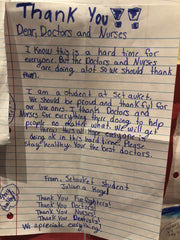 Thank You!!
Dear, Doctors and Nurses
I know this is a hard time for
everyone. But the Doctors and Nurses
are doing alot so we should thank
them.
I am a student at Setauket.
We should be proud and thankful for
our love ones. I thank Doctors and
Nurses for everything their doing to help
people no matter what. we will get
threw this all! Hope everyone is
doing ok in this hard time! Please
stay healthy! You the best doctors.
From, Setauket student
Juliana
Thank You Firefighters!
Thank You Doctors!
Thank You Nurses!
Thank You Dentists!
We appreciate everything!